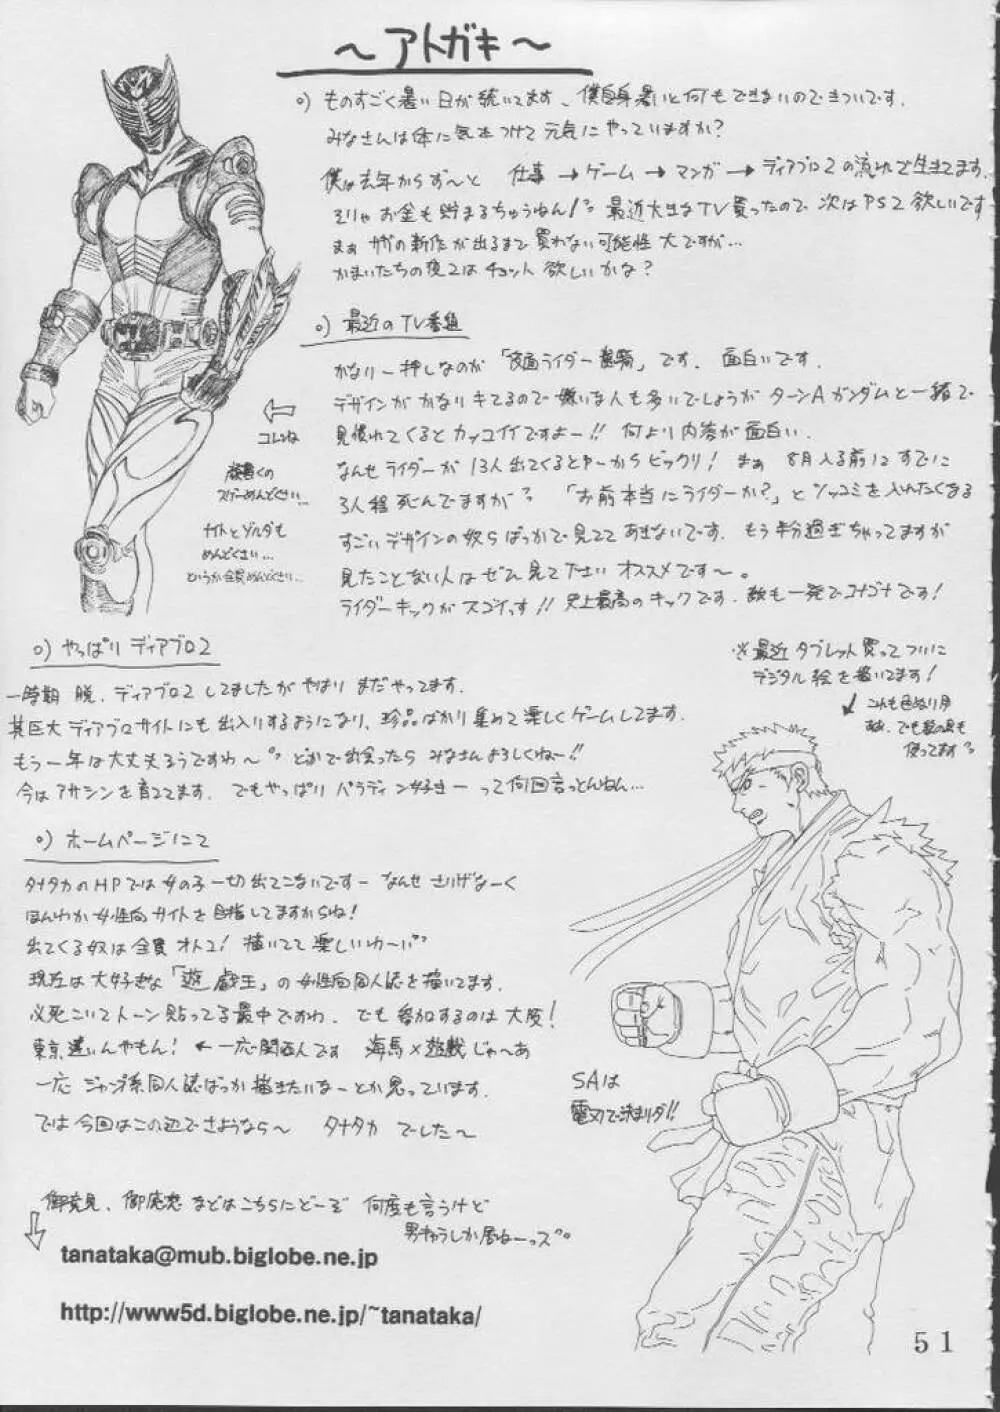 ～アトガキ～
○) ものすごく暑い日が続いてます、僕自身暑いと何もできないのできついです.
みなさんは体に気をつけて元気にやっていますか?
僕は去年からず〜と 仕事→ゲーム→マンガ→ディアブロ2の流れで生きてます.
そりゃお金も貯まるちゅうねん! 最近大きなTV買ったので次はPS2欲しいです
まぁ サガの新作が出るまで買わない可能性大ですが…
かまいたちの夜2はチョット欲しいかな?
○) 最近のTV番組
かなり一押しなのが「仮面ライダー龍騎」です. 面白いです.
デザインがかなりキてるので嫌いな人も多いでしょうがターンAガンダムと一緒で
見慣れてくるとカッコイイですよー!! 何より内容が面白い.
なんせライダーが13人出てくるとゆーからビックリ! まぁ 8月入る前にすでに
3人程死んでますが 「お前本当にライダーか?」とツッコミを入れたくなる
すごいデザインの奴らばっかで見ててあきないです. もう半分過ぎちゃってますが
見たことない人はぜひ見て下さい オススメです〜。
ライダーキックがスゴイっす!! 史上最高のキックです. 敵も一発でコナゴナです!
⇦
コレね
龍騎くの
スゲーめんどくさい…
ナイトとゾルダも
めんどくさい…
というか全員めんどくさい…
○) やっぱり ディアブロ2
一時期 脱、ディアブロ2してましたがやはりまだやってます.
某巨大ディアブロサイトにも出入りするようになり、珍品ばかり集めて楽しくゲームしてます.
もう一年は大丈夫そうですわ〜 どこかで出会ったらみなさんよろしくねー!!
今はアサシンを育ててます. でもやっぱりパラディン好きーって何回言っとんねん…
※最近タブレット買ってついに
デジタル絵を描いてます!
これも色ぬり用
○) ホームページにて
タナタカのHPでは女の子一切出てこないですー なんせさりげなーく
ほんわか女性向サイトを目指してますからね!
出てくる奴は全員オトコ! 描いてて楽しいわー
現在は大好きな「遊戯王」の女性向同人誌を描いてます.
必死こいてトーン貼ってる最中ですわ. でも参加するのは大阪!
東京遠いんやもん! ←一応関西人です 海馬×遊戯じゃ〜あ
一応 ジャンプ系同人誌ばっか描きたいなーとか思っています.
では今回はこの辺でさようなら〜 タナタカ でした〜
SAは
電刃で決まりダ!!
御意見、御感想などはこちらにどーぞ 何度も言うけど
男キャラしか居ねーっス
tanataka@mub.biglobe.ne.jp
http://www5d.biglobe.ne.jp/~tanataka/
51